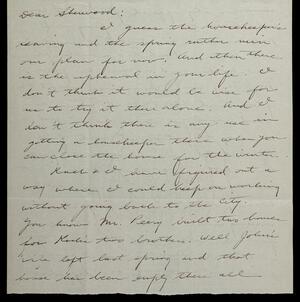 Dear Sherwood:
I guess the housekeeper's
leaving and the spring rather ruin
our plan for now. And then there
is the upheaval in your life I
don't think it would be wise for
us to try it there alone. And I
don't think there is any use in
getting a housekeeper there when you
can close the house for the winter.
& I have figured out a
way where I could keep on working
without going back to the City.
You know Mr. built two houses
for two brothers. Well John's
wife left last spring and that
house has been empty there all